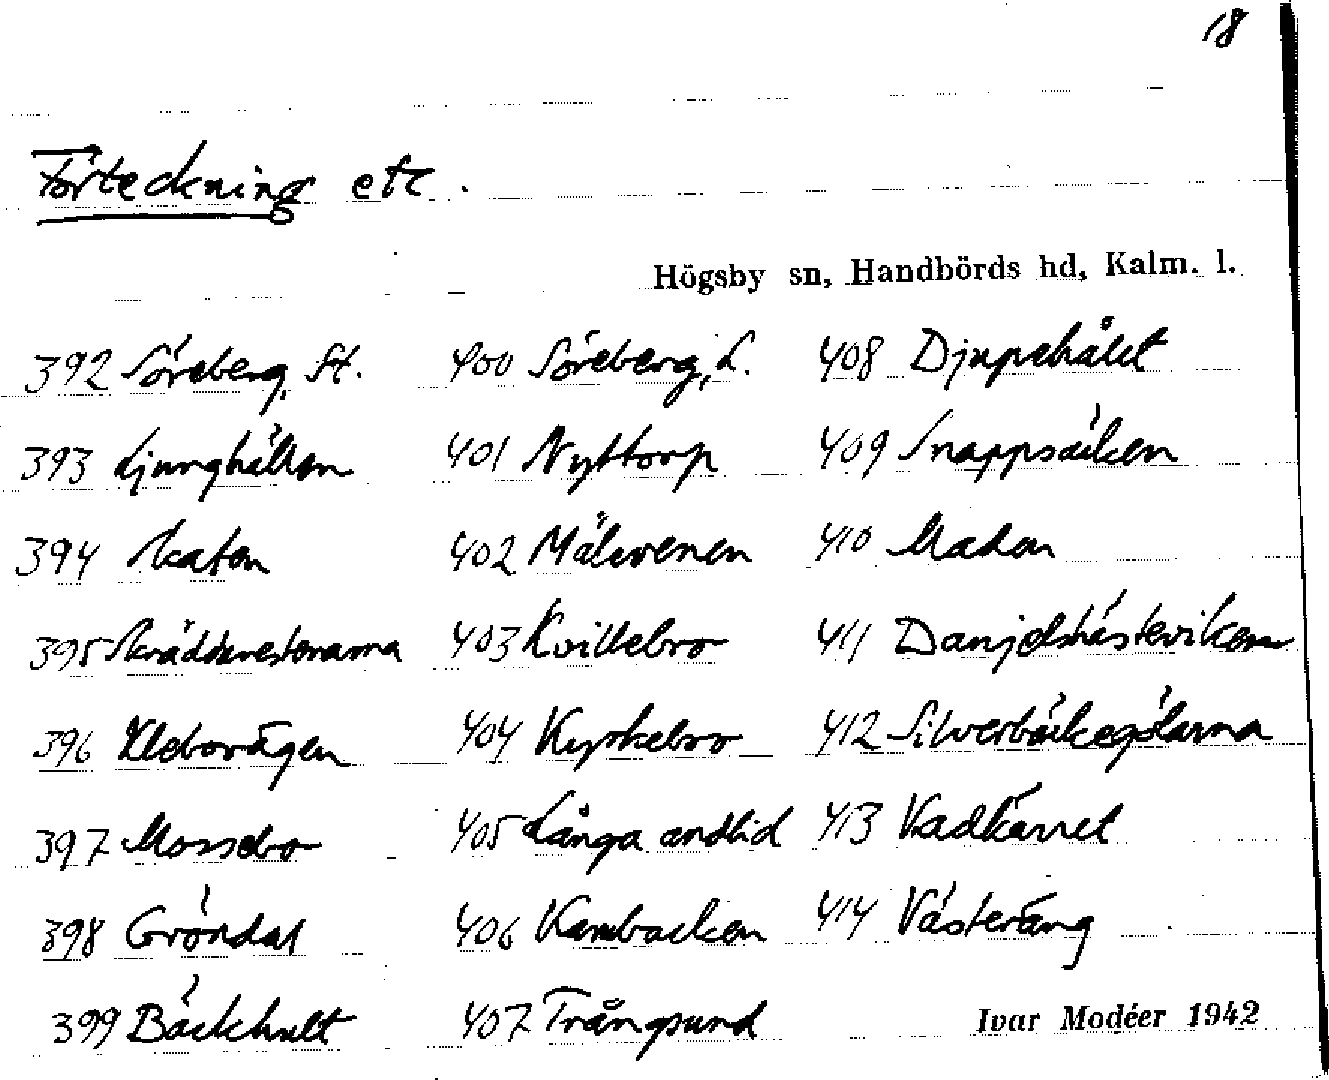 18
Förteckning etc.
Högsby sn, Handbörds hd, Kalm. l.
392 Söreberg, St. 400 Söreberg, L. 408 Djupehålet
393 Ljunghällen 401 Nyttorp 409 Snappsäcken
394 Skaten 402 Mälvenen 410 Maden
395 403 Kvillebro 411 Danjelshästeviken
396 Klebovägen 404 Kyrkebro 412 Silverbäckegölarna
397 Mossebo 405 Långa andtid 413 Vadkärret
398 Gröndal 406 Kambacken 414 Västeräng
399 Bäckhult 407 Trångsund
Ivar Modéer 1942